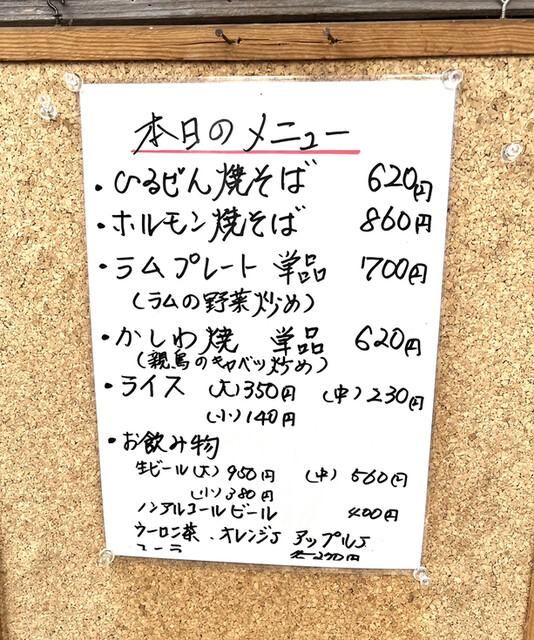 本日のメニュー
・ひるぜん焼そば 620円
・ホルモン焼そば 860円
・ラムプレート 単品 700円
(ラムの野菜炒め)
・かしわ焼 単品 620円
(親鳥のキャベツ炒め)
・ライス (大)350円 (中)230円
(小)140円
・お飲み物
生ビール(大)950円 (中)560円
(小)380円
ノンアルコールビール 400円
ウーロン茶、オレンジJ アップルJ
コーラ 各270円